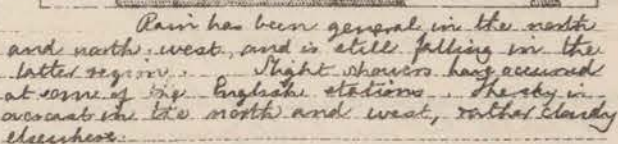 Rain has been general in the north
and north west, and is still falling in the
latter region. Slight showers have occurred
at some of the English stations. The sky is
overcast in the north and west, rather cloudy
elsewhere.